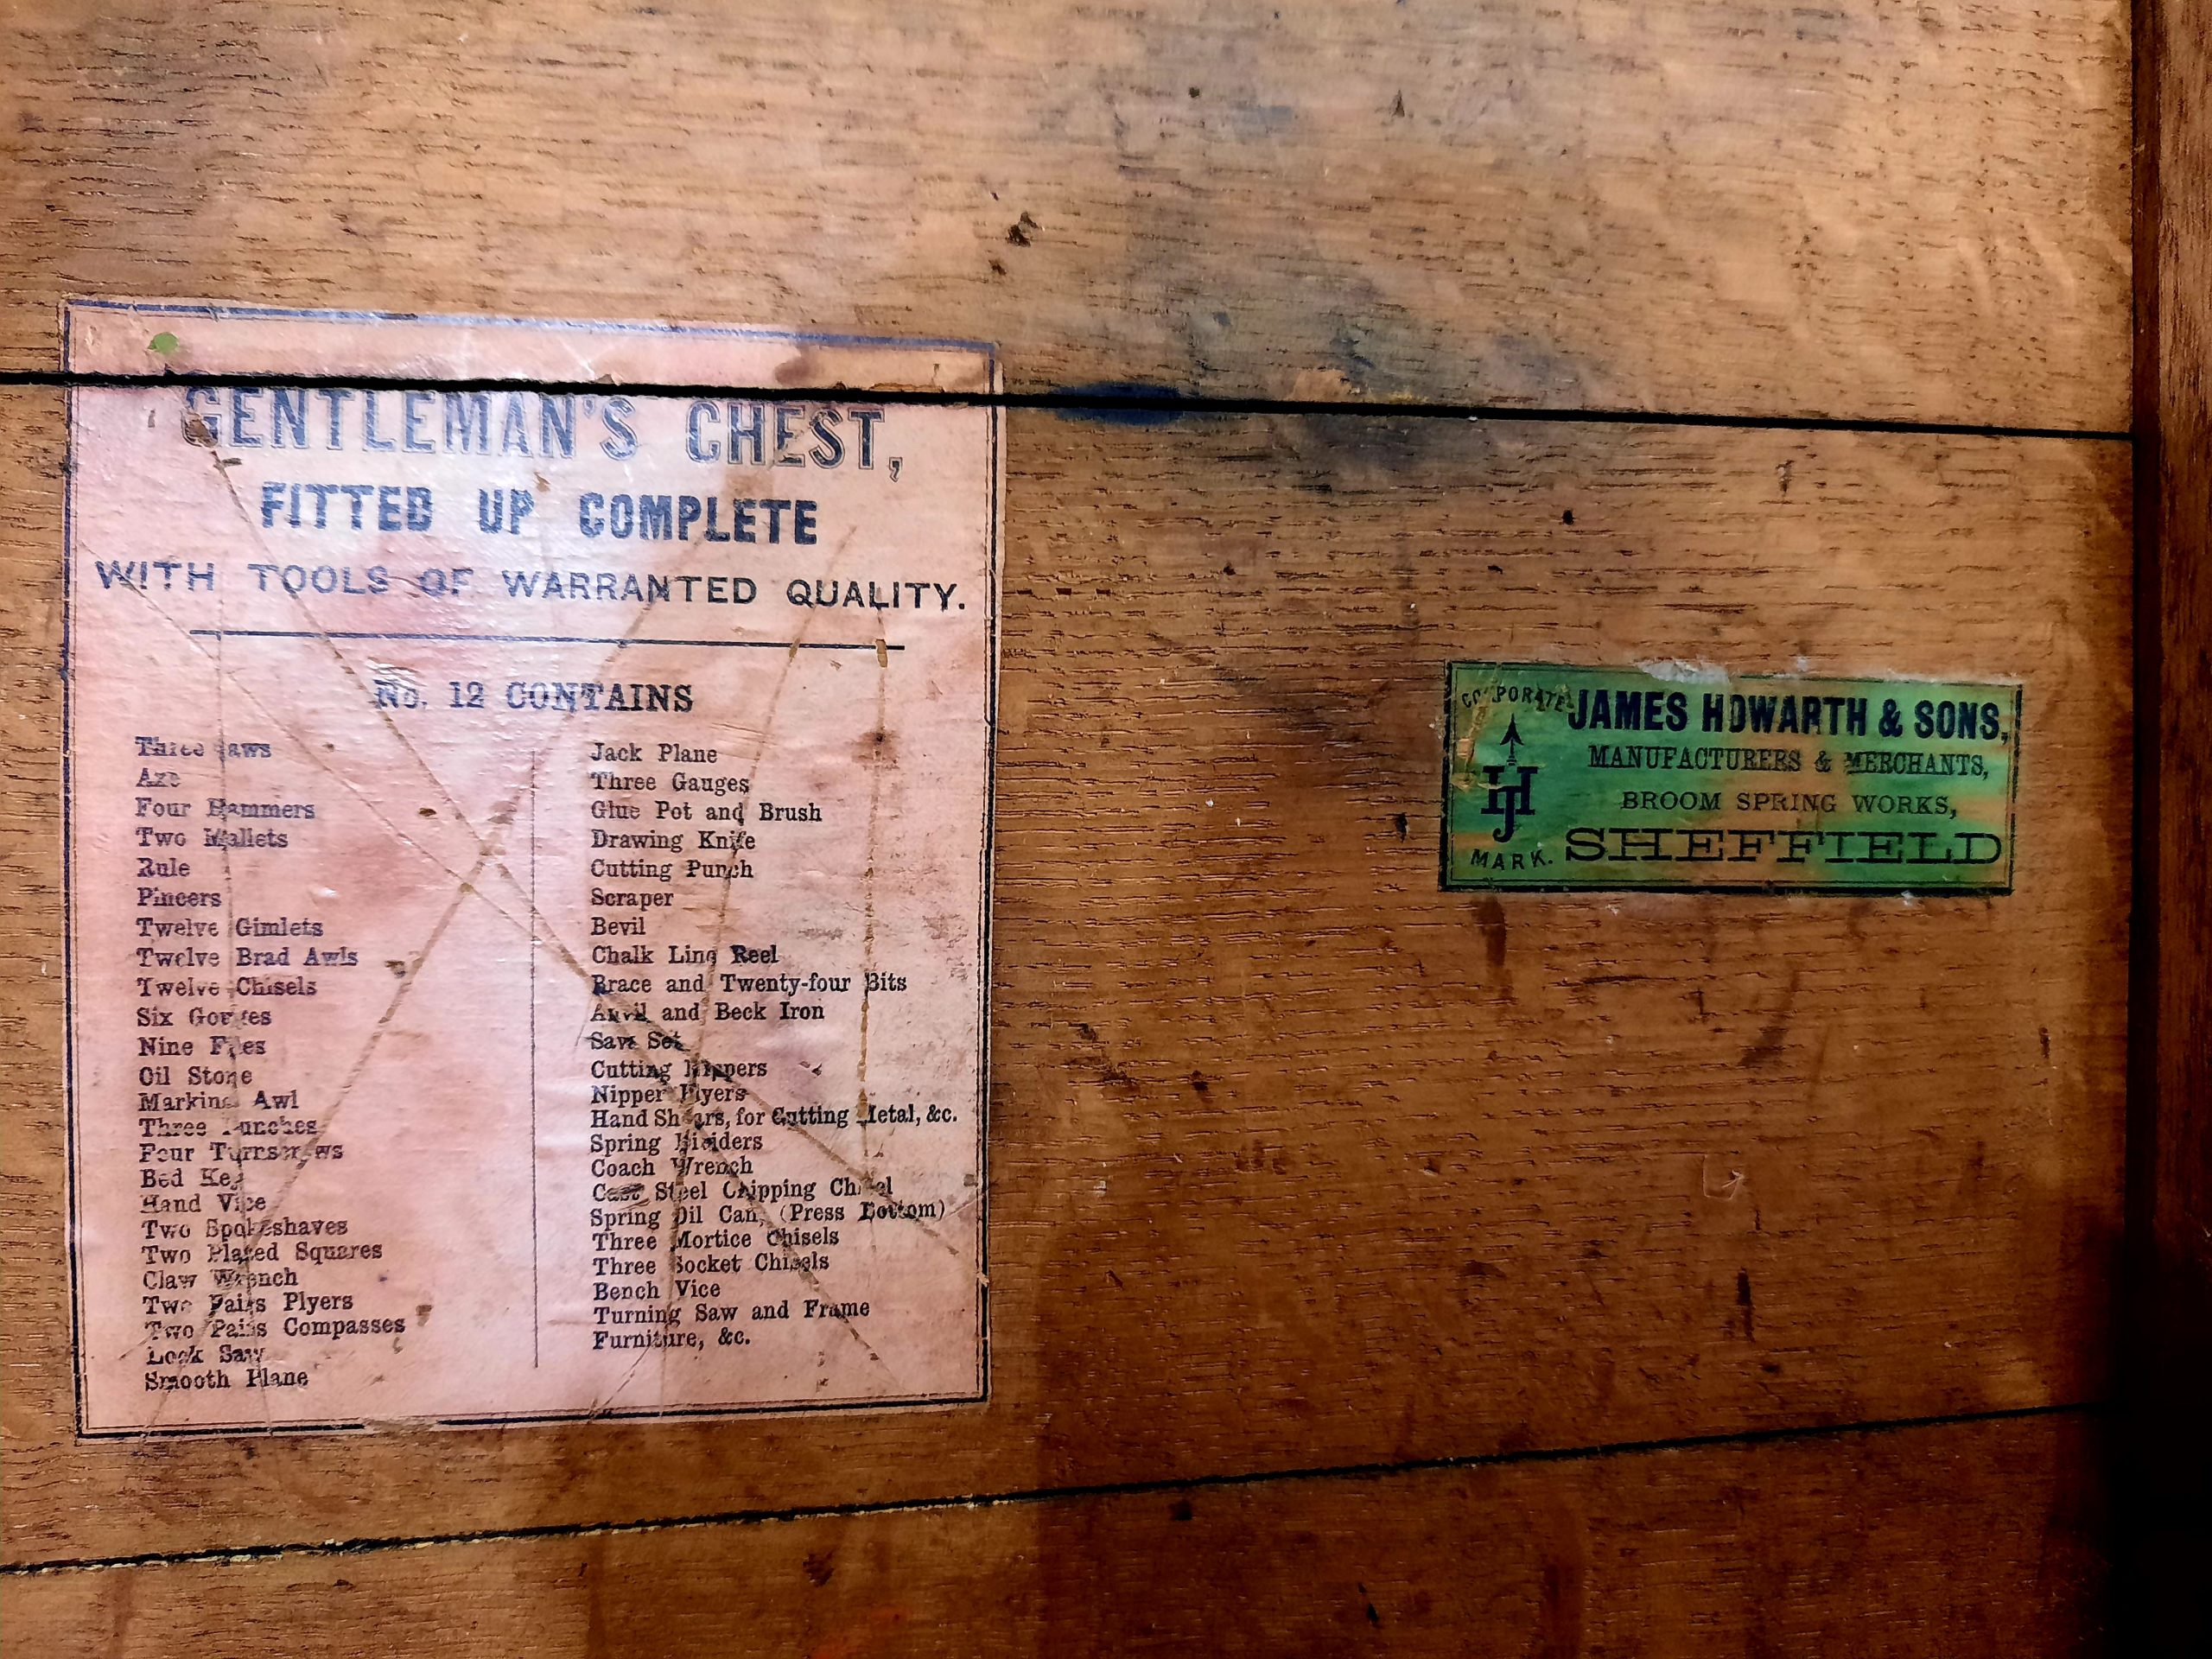 GENTLEMAN'S CHEST,
FITTED UP COMPLETE
WITH TOOLS OF WARRANTED QUALITY.
No. 12 CONTAINS
Three Saws
Axe
Four Hammers
Two Mallets
Rule
Pincers
Twelve Gimlets
Twelve Brad Awls
Twelve Chisels
Six Gouges
Nine Files
Oil Stone
Marking Awl
Three Punches
Four Turnscrews
Bed Key
Hand Vice
Two Spokeshaves
Two Plated Squares
Claw Wrench
Two Pairs Plyers
Two Pairs Compasses
Lock Saw
Smooth Plane
Jack Plane
Three Gauges
Glue Pot and Brush
Drawing Knife
Cutting Punch
Scraper
Bevil
Chalk Line Reel
Brace and Twenty-four Bits
Anvil and Beck Iron
Saw Set
Cutting Nippers
Nipper Plyers
Hand Shears, for Cutting Metal, &c.
Spring Dividers
Coach Wrench
Cast Steel Chipping Chisel
Spring Oil Can, (Press Bottom)
Three Mortice Chisels
Three Socket Chisels
Bench Vice
Turning Saw and Frame
Furniture, &c.
CORPORATE
HJ
MARK.
JAMES HOWARTH & SONS,
MANUFACTURERS & MERCHANTS,
BROOM SPRING WORKS,
SHEFFIELD